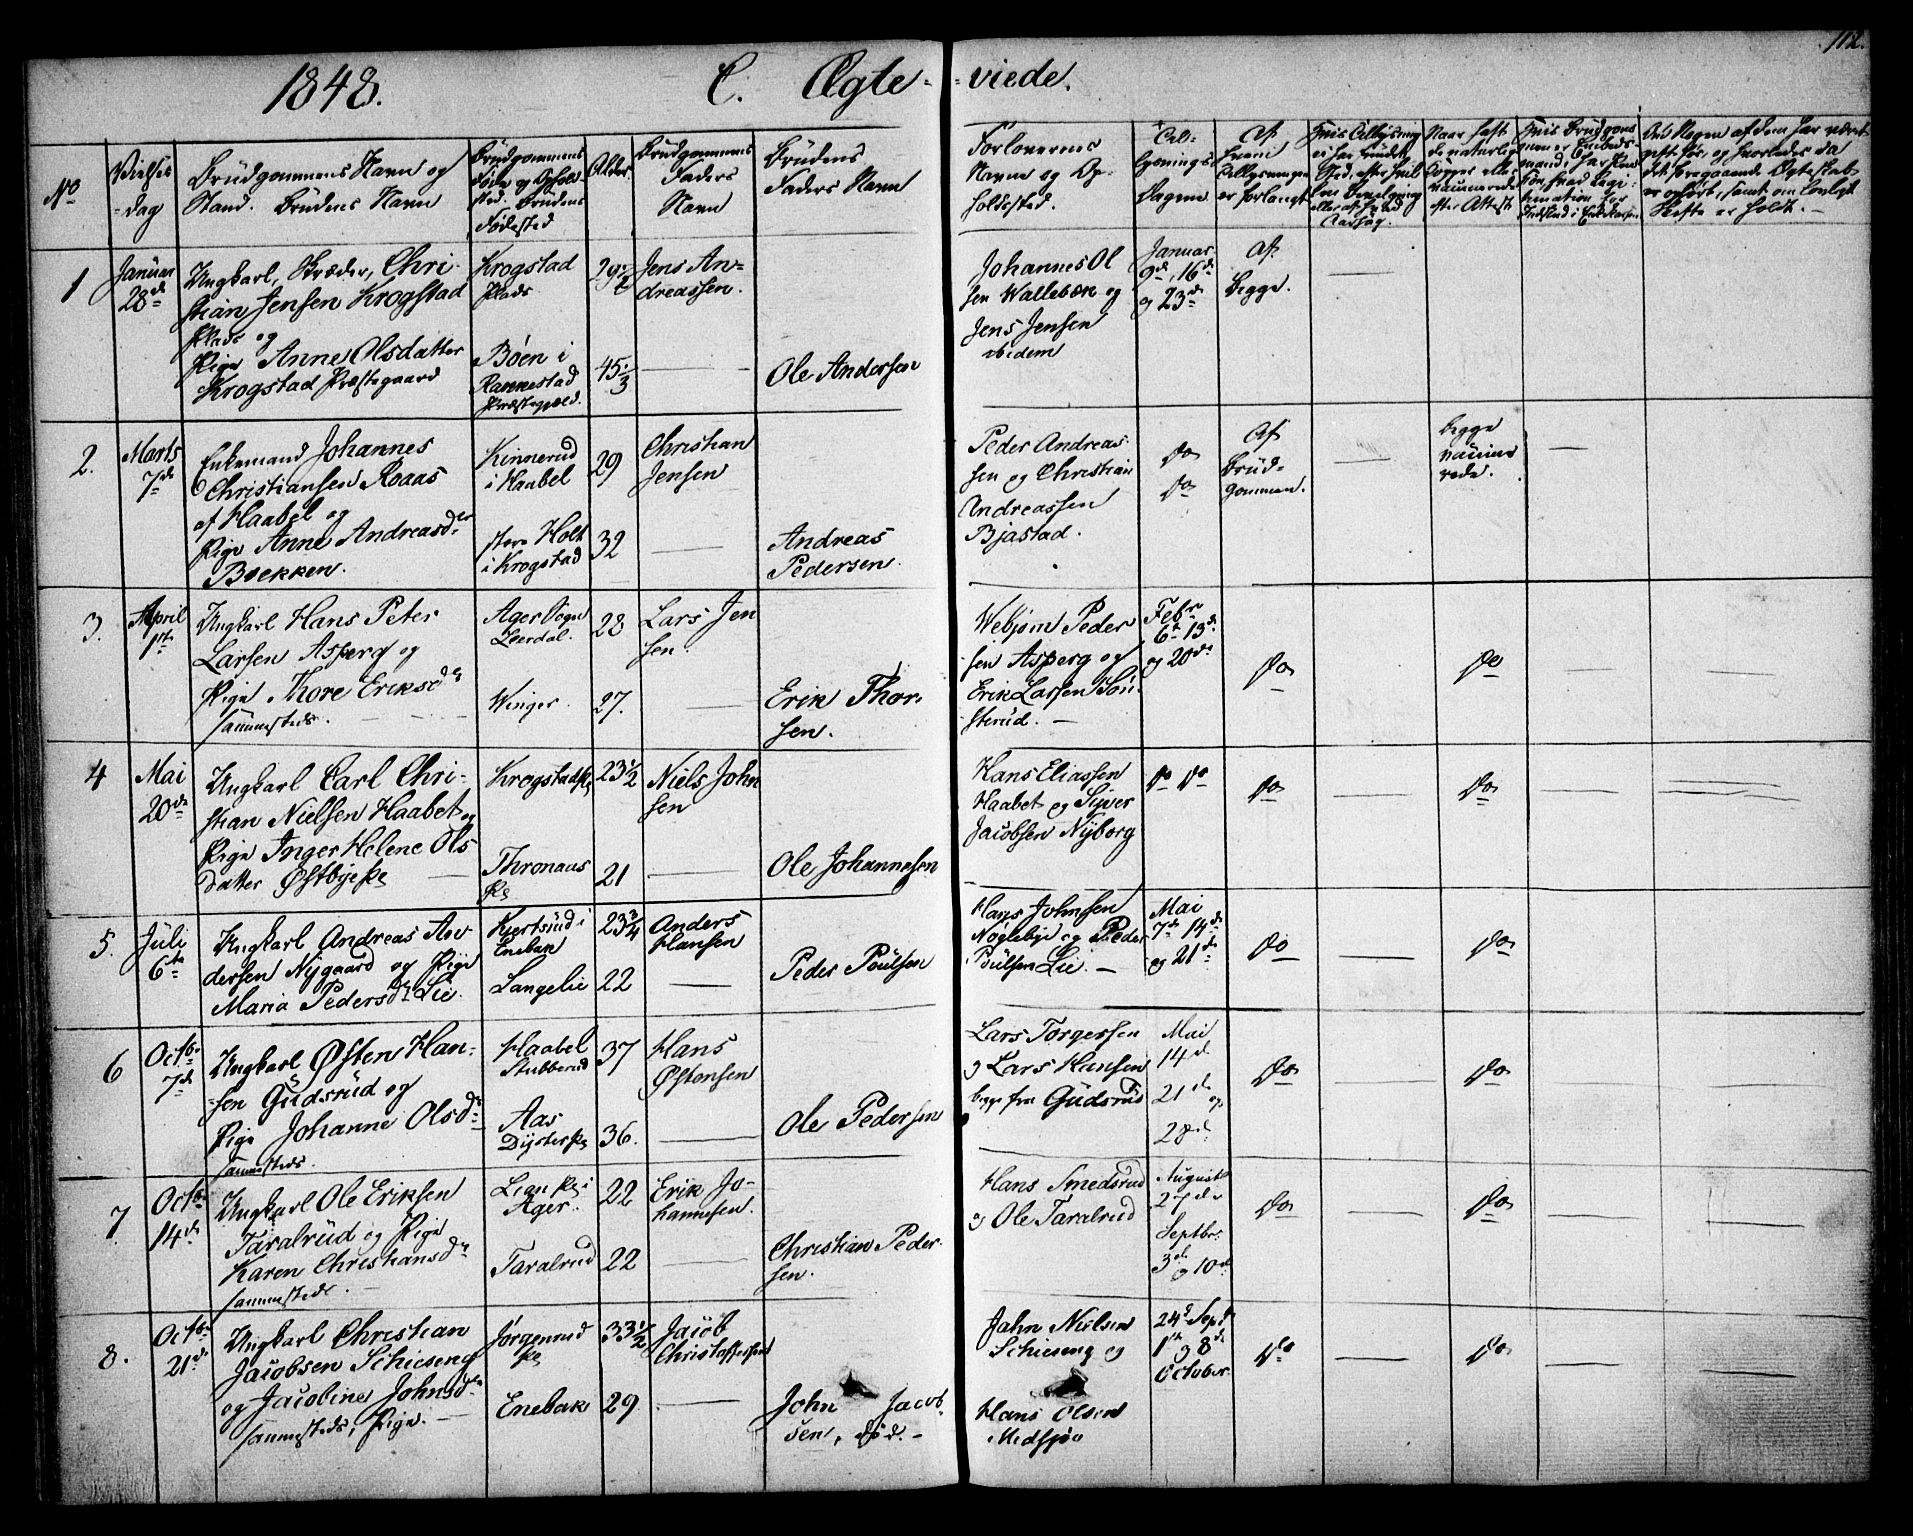 112.
1848. C. Ægte- -viede.
No
Vielses
-dag
Brudgommens Navn og
Stand. Brudens Navn
Brudgommens
Føde og Opholds
sted. Brudens
Fødested
Alder
Brudgommens
Faders
Navn
Brudens
Faders Navn
Forlovernes
Navn og Op-
holdssted.
Til-
lysnings-
Dagene
Af
hvem
Tillysningen
er forlangt
1
Januar
28de
Ungkarl, Chri-
stian Jensen Krogstad
Plads og
Pige Anne Olsdatter
Krogstad Præstegaard
Krogstad
Plads
Bøen i
Rannestad
Præstegjæld.
29 1/2
45 1/3
Jens An-
dreassen.
Ole Andersen
Johannes Ol
sen Wallebæk og
Jens Jensen
ibidem
Januar
9de, 16de
og 23de
Af
Begge.
2.
Marts
7de
Enkemand Johannes
Christiansen Roaas
af Haabel og
Pige Anne Andreasdr
Bækken.
Kinnerud
i Haabel
store Holt
i Krogstad
29
32
Christian
Jensen
Andreas
Pedersen.
Peder Andreas-
sen og Christian
Andreassen
Bjastad.
Do
Do
Af
Brud-
gommen.
begge
vaccine-
rede.
3.
April
1ste
Ungkarl Hans Peter
Larsen Asperg og
Pige Thore Eriksdr
sammesteds.
Ager Sogn
Leerdal.
Winger.
28
27.
Lars Jen
sen.
Erik Thor-
sen.
Webjørn Peder
sen Asperg og
Erik Larsen Søn-
sterud.
Febr
6te 13de
og 20de
Do
Do
4
Mai
20de
Ungkarl Carl Chri-
stian Nielsen Haabet og
Pige Inger Helene Ols
datter Østbyeke
Krogstadke
Thronaas
ke
23 1/2
21
Niels John
sen
Ole Johannesen
Hans Eliassen
Haabet og Siver
Jacobsen Nyborg
Do Do
Do
Do
5.
Juli
6te
Ungkarl Andreas An-
dersen Nygaard og Pige
Maria Pedersdr Lie.
Kjertsrud i
Enebak
Langelie
23 3/4
22
Anders
Hansen
Peder Poulsen
Hans Johnsen
Nøglebye og Peder
Poulsen Lie.
Mai
7de 14de
og 21de
Do
Do
6
Octbr
7de
Ungkarl Østen Han-
sen Gudsrud og
Pige Johanne Olsdr
sammesteds.
Haabel
Stubberud
Aas
Dysterke
37
36.
Hans
Østensen
Ole Pedersen
Lars Torgersen
og Lars Hansen
begge fra Gudsrud
Mai
14de
21de og
28de
Do
Do
7
Octbr
14de
Ungkarl Ole Eriksen
Taralrud og Pige
Karen Christiansdr
sammesteds.
Lianke i
Ager.
Taralrud
22
22
Erik Jo-
hannesen.
Christian Peder-
sen.
Hans Smedsrud
og Ole Taralrud
August
27de
Septbr.
3de
og 10de
Do
Do
8.
Octbr
21de
Ungkarl Christian
Jacobsen Schieseng
og Jacobine Johnsdr
sammesteds, Pige.
Jørgenrud
ke
Enebak
33 1/2
29
Jacob
Christoffersen
John Jacob-
sen, død.
John Nielsen
Schieseng og
Hans Olsen
Midsjøv
24de Septr
1ste og 8de
October.
Do
Do